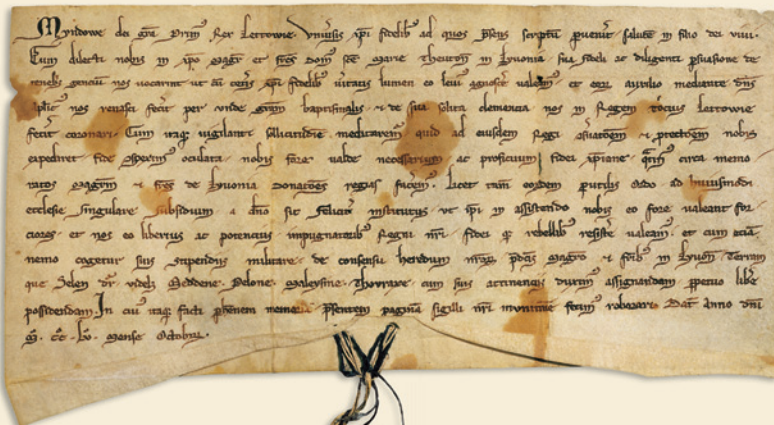 Myndowe dei gra Primus Rex Lettowie Universis xpi fidelibus ad quos presens scriptum pervenerit salute in filio dei vivi.
Cum dilecti nobis in xpo Magr et fres Dom sce Marie Theuton in Lyvonia sua fideli ac diligenti persuasione de
tenebris gencium nos vocarint ut cum ceteris xpi fidelibus veritatis lumen eo levius agnoscere valeam et eor auxilio mediante dns
nos renasci fecit per unde gram baptismalis de sua solita clemencia nos in Regem tocius Lettowie
fecit coronari. Cum itaque vigilanti sollicitudine meditarem quid ad eiusdem Regni nobis
expediret fide oculata nobis fore valde necessarium ac proficuum fidei xpiane circa memo
ratos Magrm et fres de Lyvonia donatoes regias facem. Licet tam eordem ordo ad huiusmodi
ecclesie singulare subsidium a dno sit feliciter institutus ut ipi in assistendo nobis eo fore valeant for
ciores et nos eo liberius ac potencius impugnatoribus Regni nri fidei rebellibus resistere valeam et cum eciam
nemo cogetur suis stipendiis militare de consensu heredum nror pdcis magro et fribus in Lyvon Terram
que Selen dr videlz Meddene Pelone Maleysine Thovraxe cum suis attinenciis duxim assignandam perpetuo libere
possidendam. In cuius itaque facti presentem paginam sigilli nri munimine fecim roborari. Dat Anno dni
M. CC. LV. Mense Octobris.